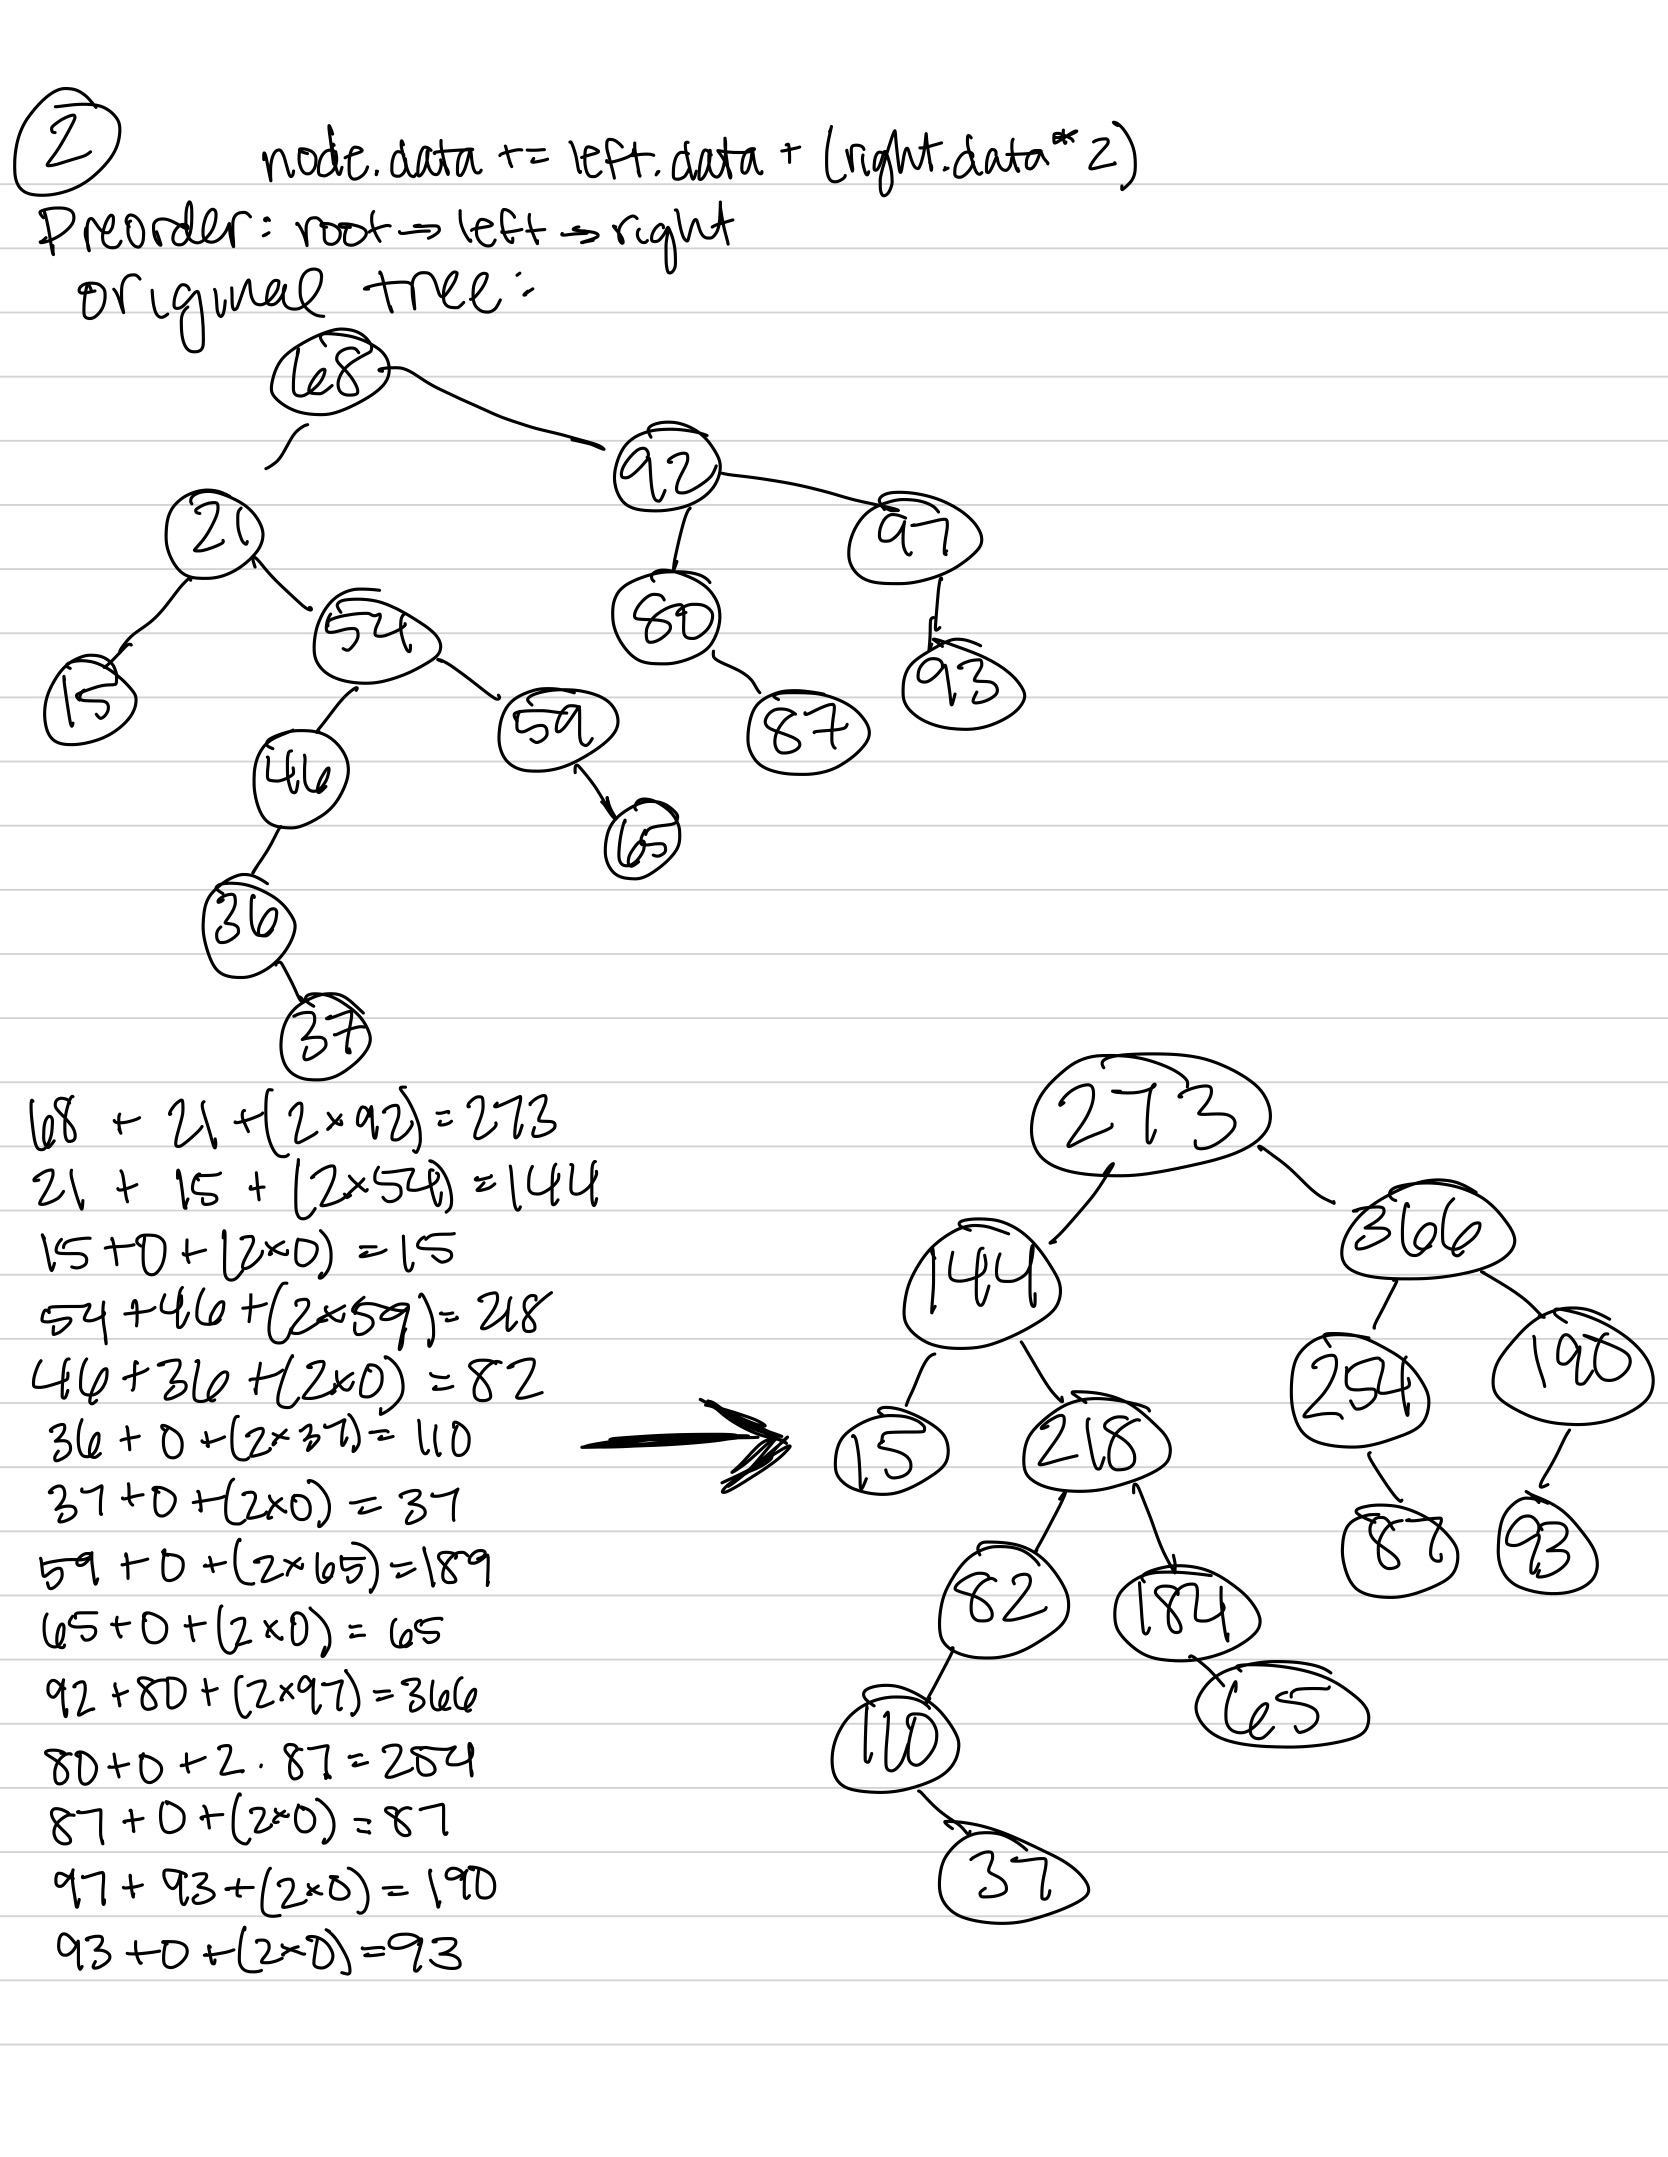 2
node.data += left.data + (right.data * 2)
Preorder: root → left → right
original tree:
68
92
21
97
54
80
15
93
59
87
46
65
36
37
68 + 21 + (2×92) = 273
21 + 15 + (2×54) = 144
15 + 0 + (2×0) = 15
54 + 46 + (2×59) = 218
46 + 36 + (2×0) = 82
36 + 0 + (2×37) = 110
37 + 0 + (2×0) = 37
59 + 0 + (2×65) = 189
65 + 0 + (2×0) = 65
92 + 80 + (2×97) = 366
80 + 0 + 2 · 87 = 254
87 + 0 + (2×0) = 87
97 + 93 + (2×0) = 190
93 + 0 + (2×0) = 93
273
366
144
254
190
15
218
87
93
82
184
65
110
37